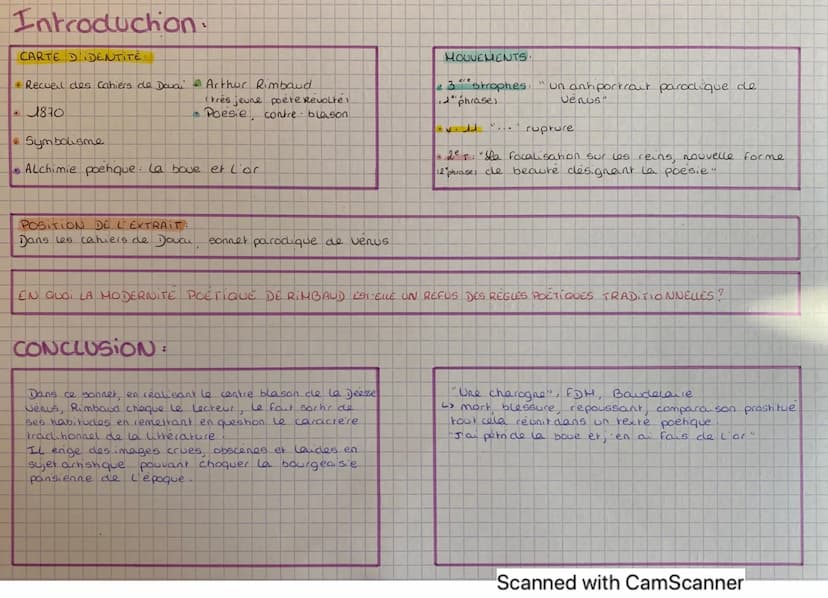 Introduction.
CARTE D'IDENTITÉ
Recueil des Cahiers de Douai
Arthur Rimbaud
(très jeune poète révolté)
1870
Poésie, contre-blason
Symbolisme
Alchimie poétique: la boue et l'or
MOUVEMENTS.
3 1ères strophes: "un antiportrait parodique de
(1ère phrase) vénus"
v. 11 "..." rupture
"La focalisation sur les reins, nouvelle forme
(2e phrase) de beauté désignant la poésie"
POSITION DE L'EXTRAIT:
Dans les cahiers de Douai, sonnet parodique de vénus
EN QUOI LA MODERNITÉ POÉTIQUE DE RIMBAUD EST-ELLE UN REFUS DES RÈGLES POÉTIQUES TRADITIONNELLES?
CONCLUSION:
Dans ce sonnet, en réalisant le contre blason de la Déesse
Vénus, Rimbaud choque le lecteur, le fait sortir de
ses habitudes en remettant en question le caractère
traditionnel de la littérature.
Il érige des images crues, obscènes et laides en
sujet artistique pouvant choquer la bourgeoisie
parisienne de l'époque.
"Une charogne", FDM, Baudelaire
↳ mort, blessure, repoussant, comparaison prostituée
tout cela réunit dans un texte poétique.
"J'ai pétri de la boue et j'en ai fais de l'or"
Scanned with CamScanner